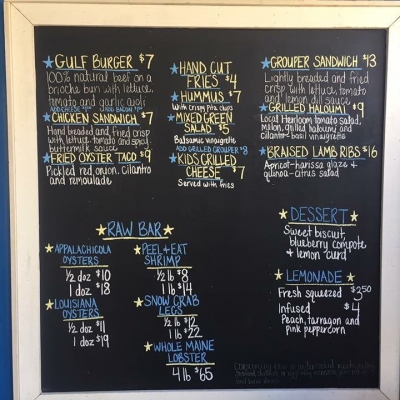 GULF BURGER $7
100% natural beef on a
brioche bun with lettuce,
tomato and garlic aioli
ADD CHEESE $1 ADD BACON $1
CHICKEN SANDWICH $7
Hand breaded and fried crisp
with lettuce, tomato and spicy
buttermilk sauce
FRIED OYSTER TACO $9
Pickled red onion, cilantro
and remoulade
HAND CUT
FRIES $4
HUMMUS $7
With crispy pita chips
MIXED GREEN
SALAD $5
Balsamic vinaigrette
ADD GRILLED GROUPER $8
KIDS GRILLED
CHEESE $7
Served with fries
GROUPER SANDWICH $13
Lightly breaded and fried
crisp with lettuce, tomato
and lemon dill sauce
GRILLED HALOUMI $9
Local Heirloom tomato salad,
melon, grilled haloumi and
cilantro-basil vinaigrette
BRAISED LAMB RIBS $16
Apricot-harissa glaze +
quinoa-citrus salad
RAW BAR
APPALACHICOLA
OYSTERS
1/2 doz $10
1 doz $18
LOUISIANA
OYSTERS
1/2 doz $11
1 doz $19
PEEL + EAT
SHRIMP
1/2 lb $8
1 lb $14
SNOW CRAB
LEGS
1/2 lb $12
1 lb $22
WHOLE MAINE
LOBSTER
4 lb $65
DESSERT
Sweet biscuit,
blueberry compote
+ lemon curd
LEMONADE
Fresh squeezed $3.50
Infused $4
Peach, tarragon and
pink peppercorn